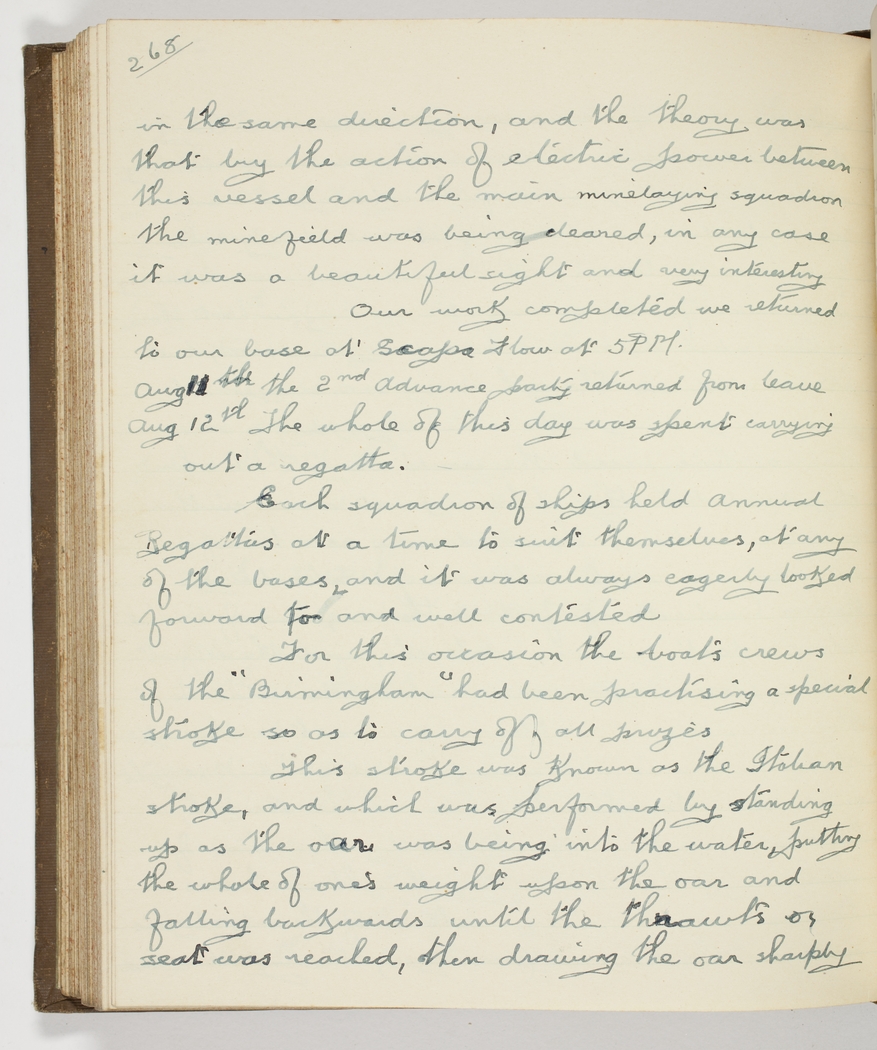 268
in the same direction, and the theory was
that by the action of electric power between
this vessel and the main minelaying squadron
the minefield was being cleared, in any case
it was a beautiful sight and very interesting
Our work completed we returned
to our base at Scapa Flow at 5PM.
Aug 11th the 2nd Advance party returned from leave
Aug 12th The whole of this day was spent carrying
out a regatta.
Each squadron of ships held Annual
Regattas at a time to suit themselves, at any
of the bases, and it was always eagerly looked
forward to and well contested
For this occasion the boats crews
of the "Birmingham" had been practising a special
stroke so as to carry off all prizes
This stroke was known as the Italian
stroke, and which was performed by standing
up as the oar was being into the water, putting
the whole of one's weight upon the oar and
falling backwards until the thawts or
seat was reached, then drawing the oar sharply